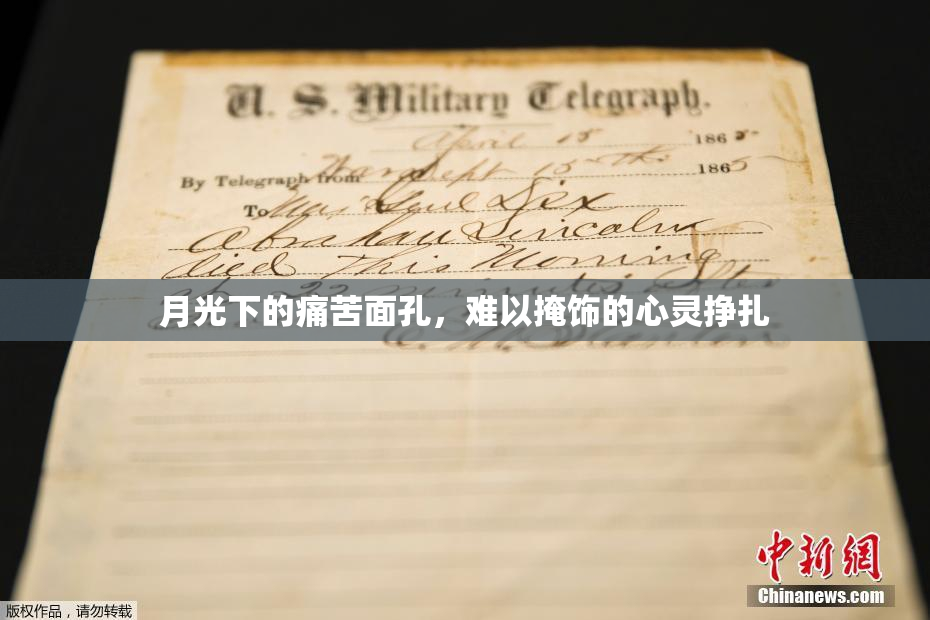 U. S. Military Telegraph.
April 15 1865
By Telegraph from War Dept 15th 1865
To Maj Genl Dix
Abraham Lincoln
died This Morning
at 22 minutes after
月光下的痛苦面孔，难以掩饰的心灵挣扎
中新網
Chinanews.com
版权作品，请勿转载